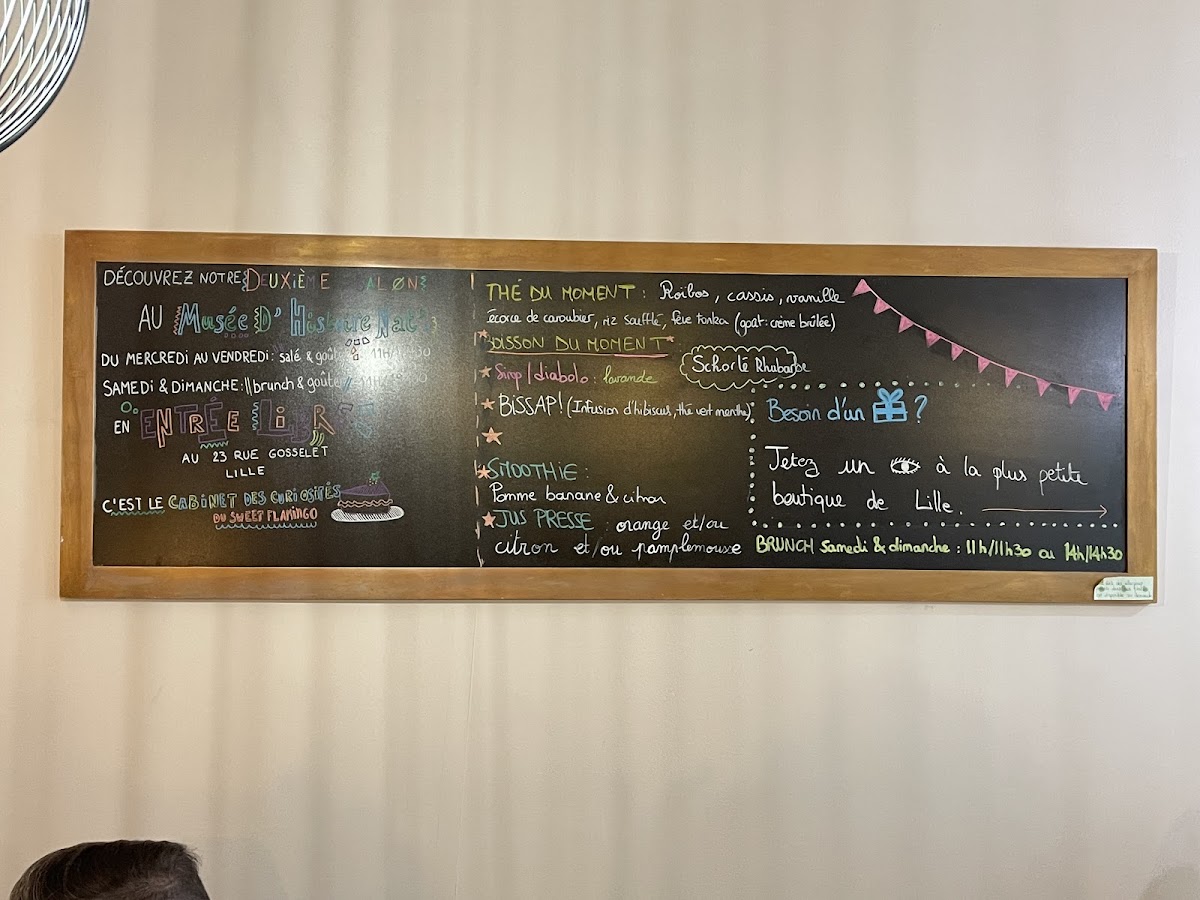 DÉCOUVREZ NOTRE DEUXIÈME SALON
AU Musée D'Histoire Nat
DU MERCREDI AU VENDREDI: salé & goûter
SAMEDI & DIMANCHE: brunch & goûter
EN ENTRÉE LIBRE
AU 23 RUE GOSSELET
LILLE
C'EST LE CABINET DES CURIOSITÉS
DU SWEET FLAMINGO
THÉ DU MOMENT : Roïbos, cassis, vanille
écorce de caroubier, riz soufflé, fève tonka (goût: crème brûlée)
BOISSON DU MOMENT
Schorlé Rhubarbe
Sirop/diabolo: lavande
BISSAP! (Infusion d'hibiscus, thé vert menthe)
SMOOTHIE:
Pomme banane & citron
JUS PRESSE : orange et/ou
citron et/ou pamplemousse
Besoin d'un ?
Jetez un à la plus petite
boutique de Lille.
BRUNCH Samedi & dimanche : 11h/11h30 ou 14h/14h30